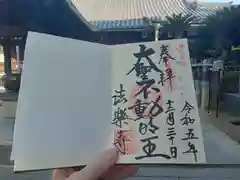 奉拝
十二月三十日
令和五年
大聖不動明王
法楽寺